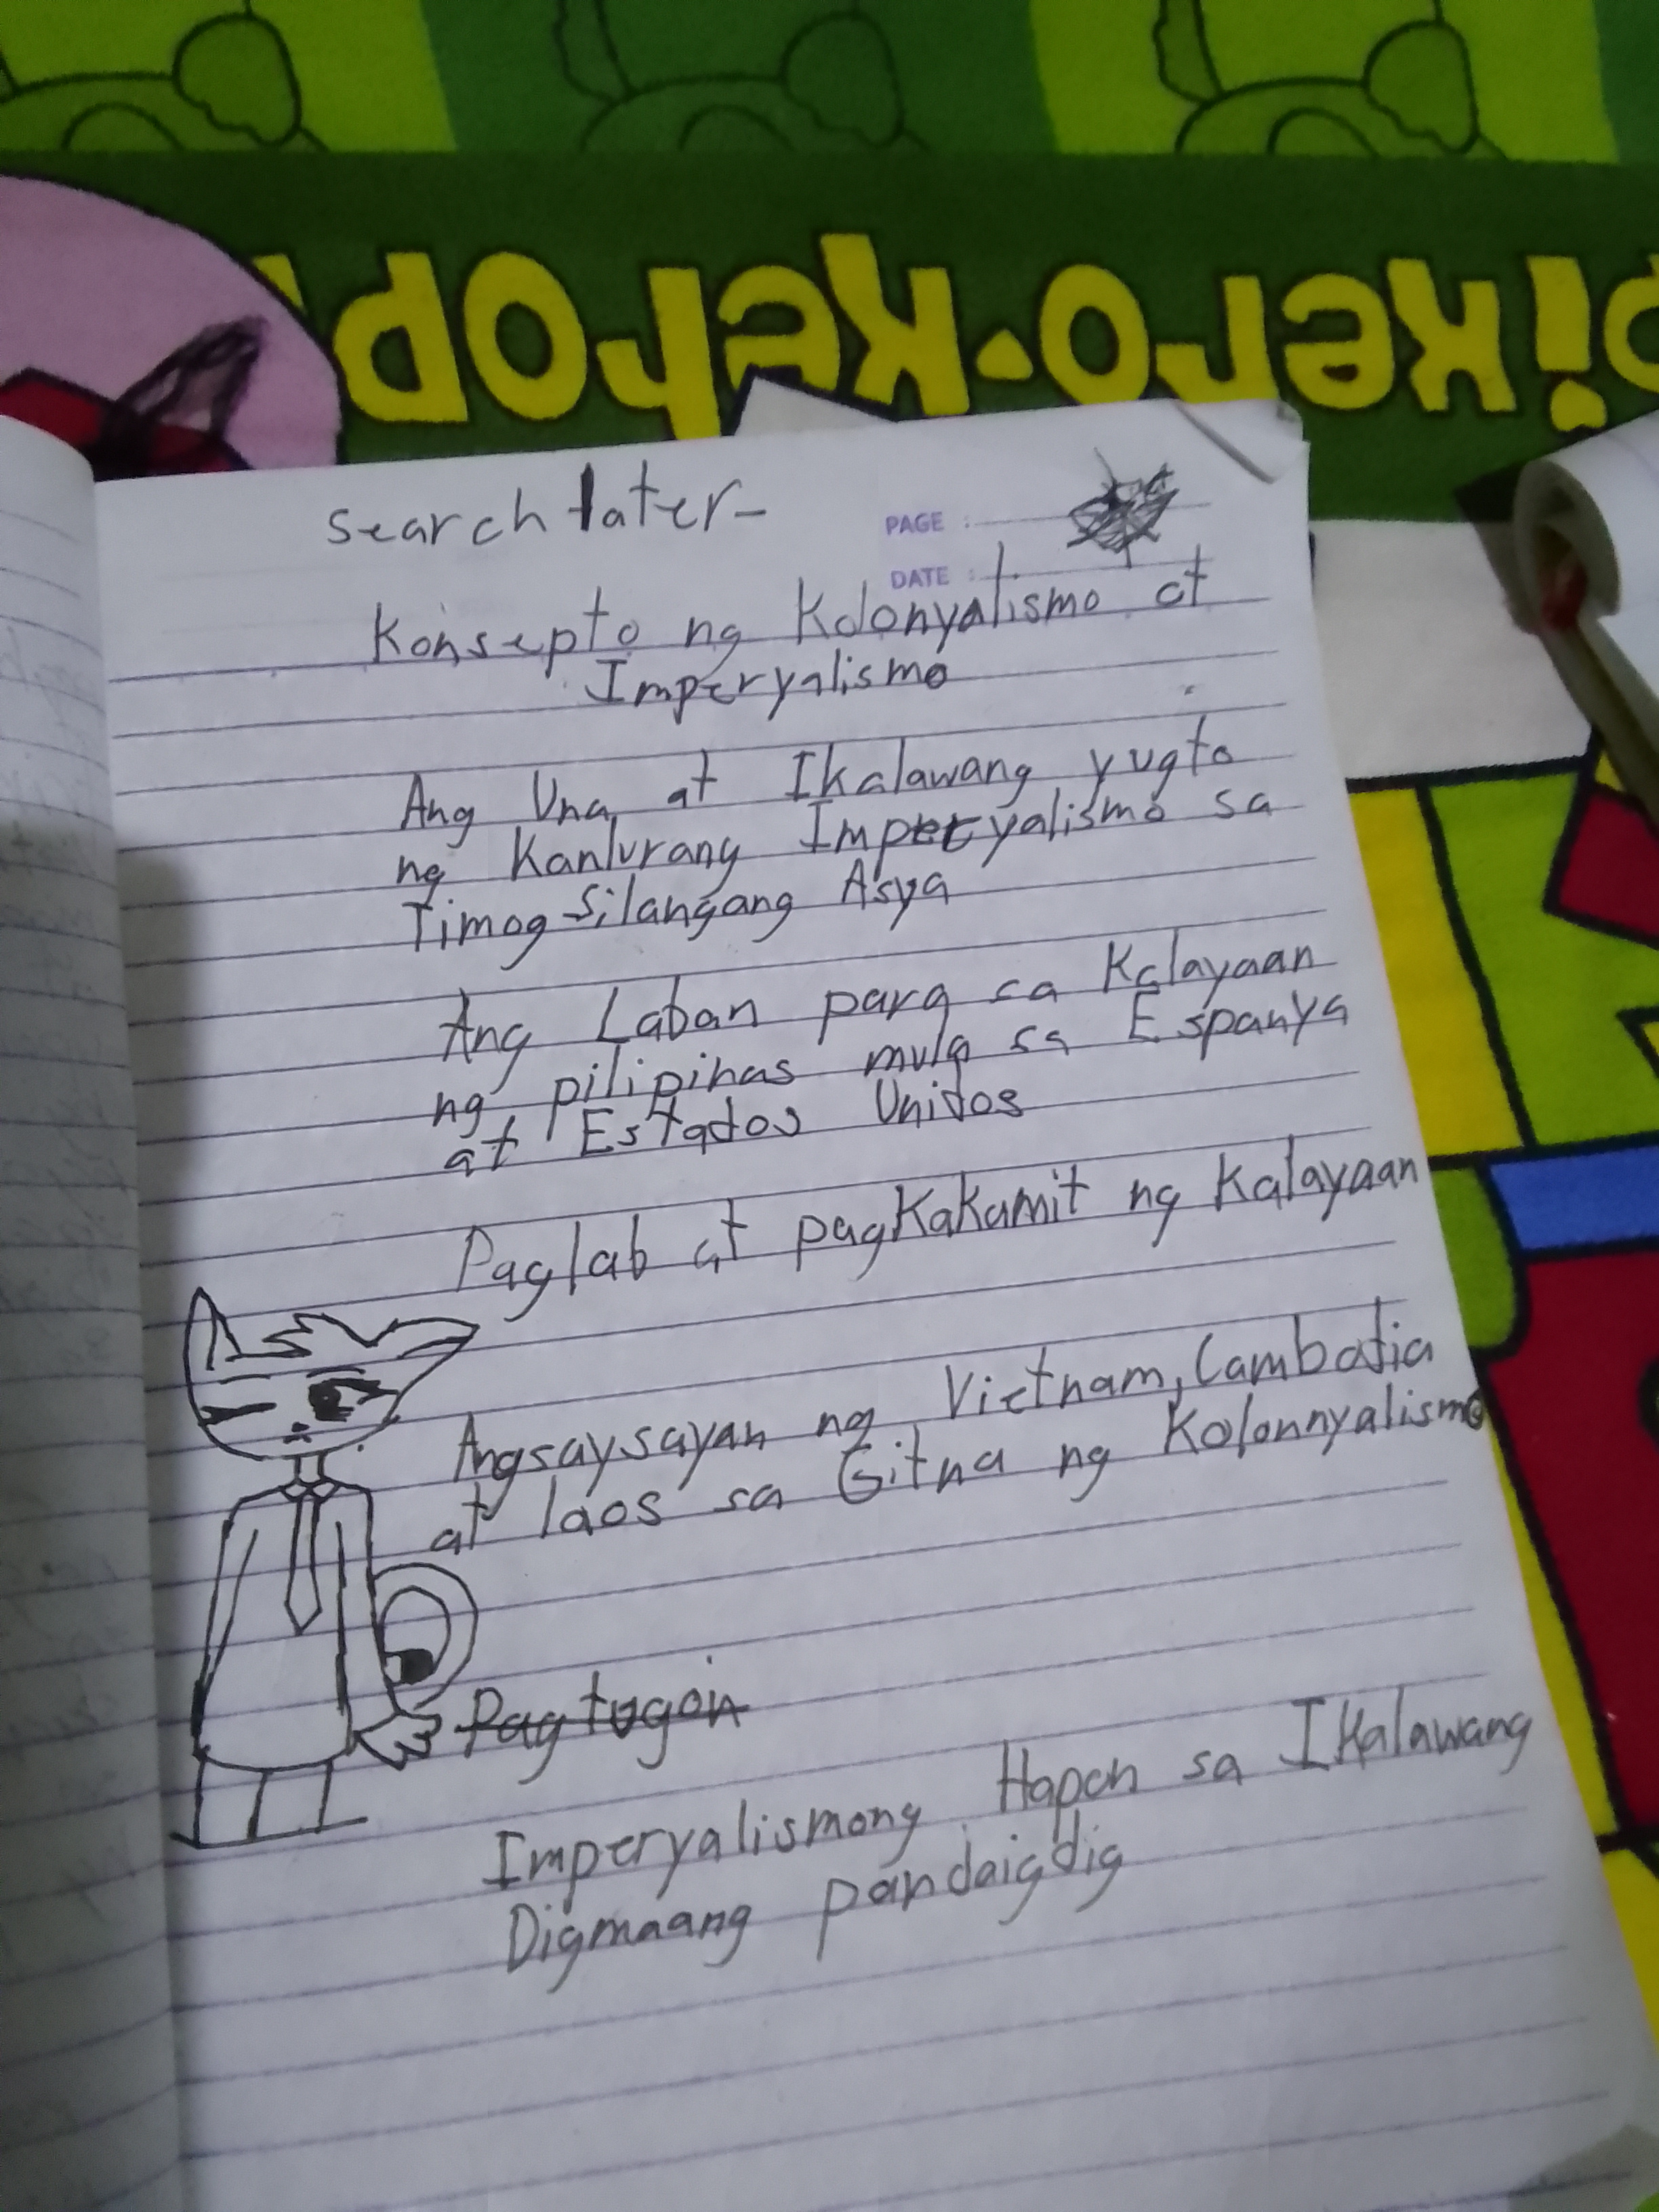 piKero·Keropi
search later-
PAGE :
DATE :
Konsepto ng Kolonyalismo at
Imperyalismo
Ang Una at Ikalawang yugto
ng Kanlurang Imperyalismo sa
Timog Silangang Asya
Ang Laban para sa Kalayaan
ng pilipinas mula sa Espanya
at Estados Unidos
Paglab at pagKaKamit ng Kalayaan
Angsaysayan ng Vietnam, Cambodia
at laos sa Gitna ng Kolonnyalismo
Pagtugon
Imperyalismong Hapon sa IKalawang
Digmaang pandaigdig